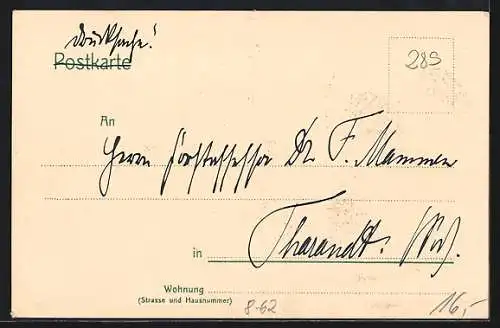 Drucksache!
Postkarte
285
An
Herrn Forstassessor Dr F. Mammen
in Tharandt.
Wohnung
(Strasse und Hausnummer)
8-62
16,-